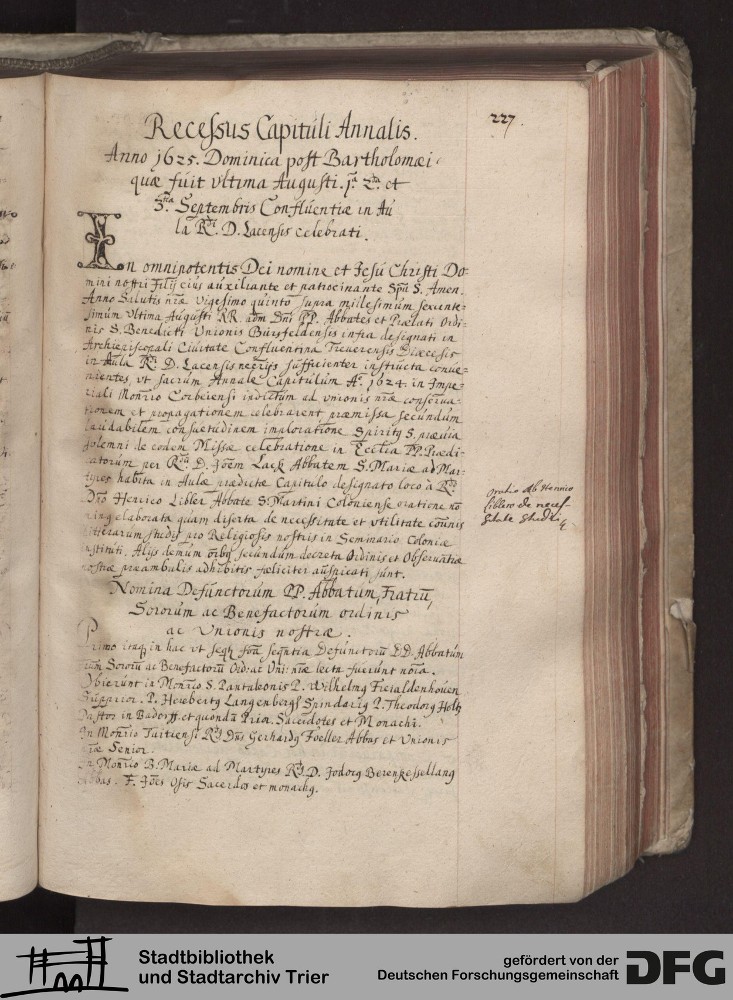 227.
Recessus Capituli Annalis.
Anno 1625. Dominica post Bartholomæi
quæ fuit vltima Augusti. 1ª 2da et
3tia Septembris Confluentiæ in Au
la Rdi. D. Lacensis celebrati.
In omnipotentis Dei nomine et Jesu Christi Do=
mini nostri Filij eius auxiliante et patrocinante Spũ S. Amen.
Anno Salutis nræ vigesimo quinto supra millesimum sexcente=
simum vltima Augusti RR. adm Dni PP. Abbates et Prælati Ordi=
nis S. Benedicti Unionis Bursfeldensis infra designati in
Archiepiscopali Ciuitate Confluentina Treuerensis Diœcesis
in Aula Rdi D. Lacensis negotijs sufficienter instructa conue=
nientes, vt sacrum Annale Capitulum Aº. 1624. in Impe=
riali Monrio Corbeiensi indictum ad vnionis nræ conserua=
tionem et propagationem celebrarent præmissa secundum
laudabilem consuetudinem imploratione Spiritg S. prædia
solemni de eodem Missæ celebratione in Ecclia PP. Prædi=
catorum per Rdum D. Joẽm Lack Abbatem S. Mariæ ad Mar=
tyres habita in Aulæ prædictæ Capitulo designato loco à Rdo
Dño Henrico Libler Abbate S. Martini Coloniense oratione nõ
ming elaborata quam diserta de necessitate et vtilitate cõunis
litterarum studij pro Religiosis nostris in Seminario Coloniæ
instituti. Alijs demum õrbg secundum decreta Ordinis et Obseruantiæ
nostræ præambulis adhibitis fæliciter auspicati sunt.
oratio Ab Henrico
Liblero de necef-
sitate Studij
Nomina Defunctorum PP. Abbatum, Fratrũ,
Sororum ac Benefactorum ordinis
ac Unionis nostræ.
Primo itaq in hac vt seqq̃ seqñtia Defunctorũ DD. Abbatum
rum Sororũ ac Benefactorũ Ord: ac Uni: nræ lecta fuerunt noĩa.
Obierunt in Monrio S. Pantaleonis P. Wilhelmg Freialdenhouen
Supprior. P. Heribertg Langenbergh Spindarig P. Theodorg Holtz
Pastor in Badorff et quondã Prior. Sacerdotes et Monachi.
In Monrio Tuitiensi Rdg Dns Gerhardg Foeller Abbas et Unionis
nræ Senior.
In Monrio B. Mariæ ad Martyres Rdg D. Jodocg Berenkessellang
Abbas. F. Joẽs Osis Sacerdos et monachg.
Stadtbibliothek
und Stadtarchiv Trier
gefördert von der
Deutschen Forschungsgemeinschaft
DFG